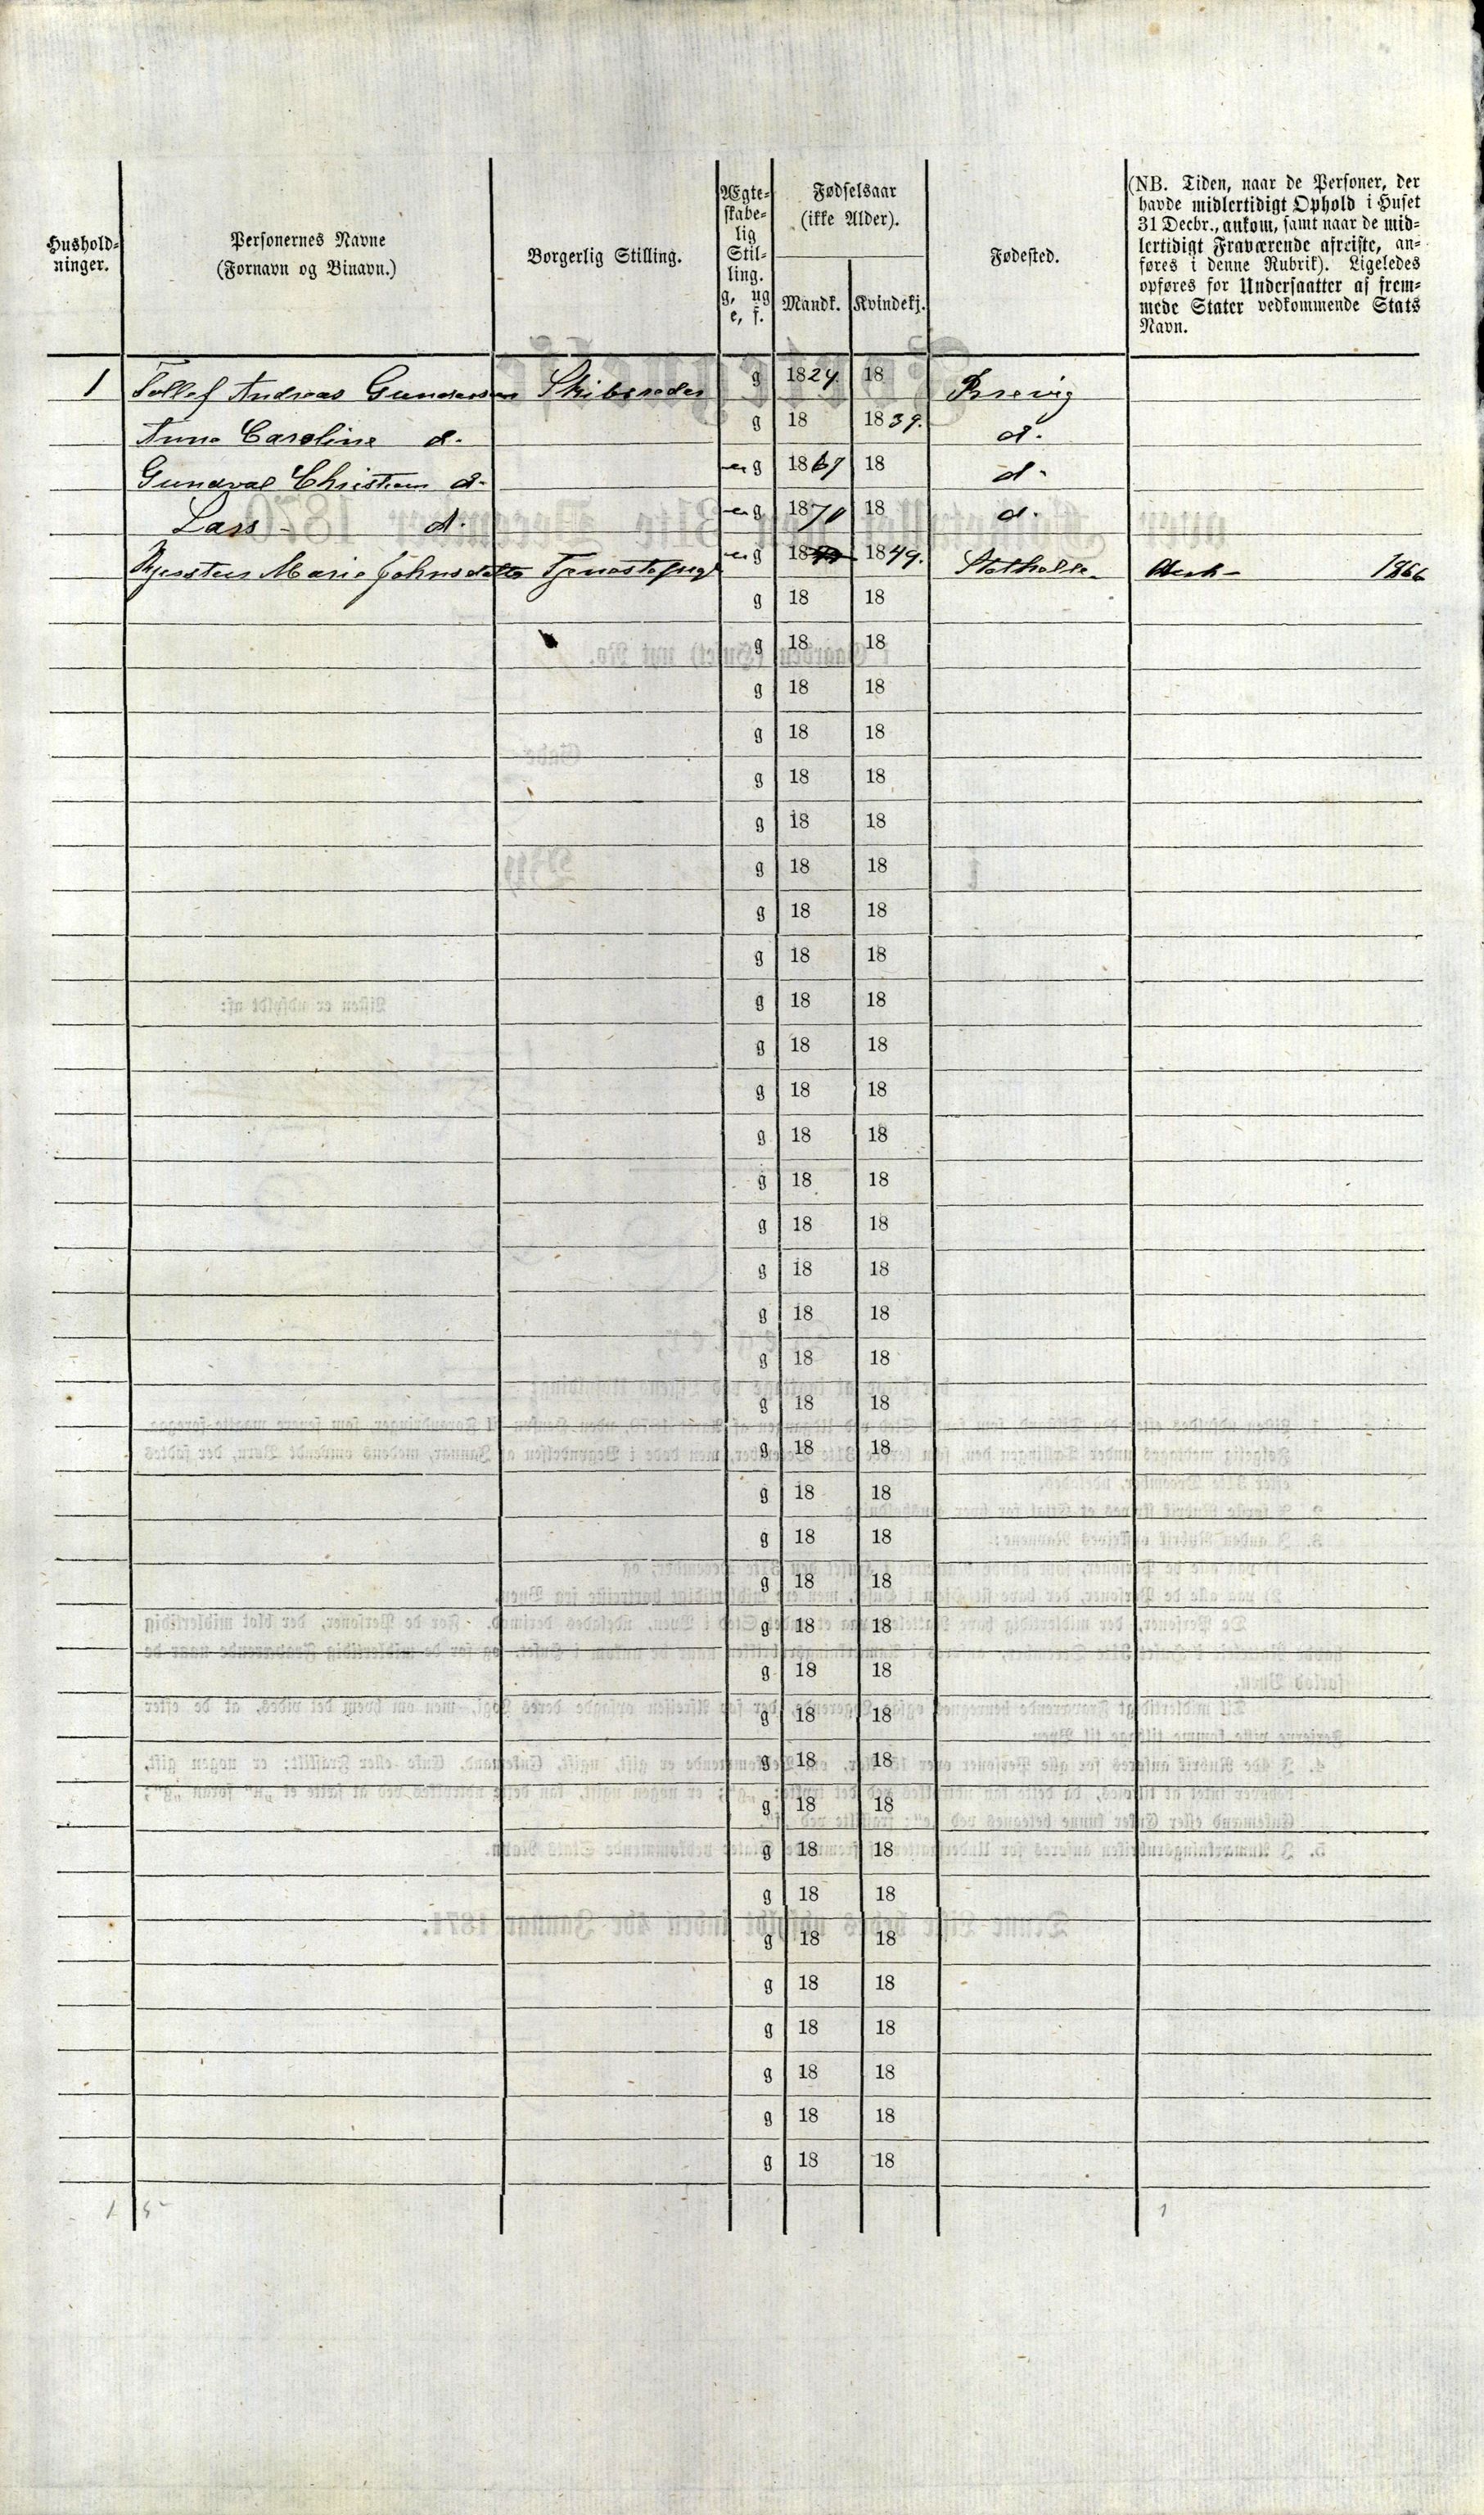 Hushold-
ninger.
Personernes Navne
(Fornavn og Binavn.)
Borgerlig Stilling.
Ægte-
skabe-
lig
Stil-
ling.
g, ug
e, f.
Fødselsaar
(ikke Alder).
Mandk. Kvindekj.
Fødested.
(NB. Tiden, naar de Personer, der
havde midlertidigt Ophold i Huset
31 Decbr., ankom, samt naar de mid-
lertidigt Fraværende afreiste, an-
føres i denne Rubrik). Ligeledes
opføres for Undersaatter af frem-
mede Stater vedkommende Stats
Navn.
1 Tollef Andreas Gundersen Skibsreder g 1824. 18 Brevig
Anne Caroline d. g 18 1839. d.
Gundval Christian d. ug 1867 18 d.
Lars d. ug 1870 18 d.
Marie Johnsdatter ug 18 1849. Stathelle 1866
g 18 18
g 18 18
g 18 18
g 18 18
g 18 18
g 18 18
g 18 18
g 18 18
g 18 18
g 18 18
g 18 18
g 18 18
g 18 18
g 18 18
g 18 18
g 18 18
g 18 18
g 18 18
g 18 18
g 18 18
g 18 18
g 18 18
g 18 18
g 18 18
g 18 18
g 18 18
g 18 18
g 18 18
g 18 18
g 18 18
g 18 18
g 18 18
g 18 18
g 18 18
g 18 18
g 18 18
1 5 1